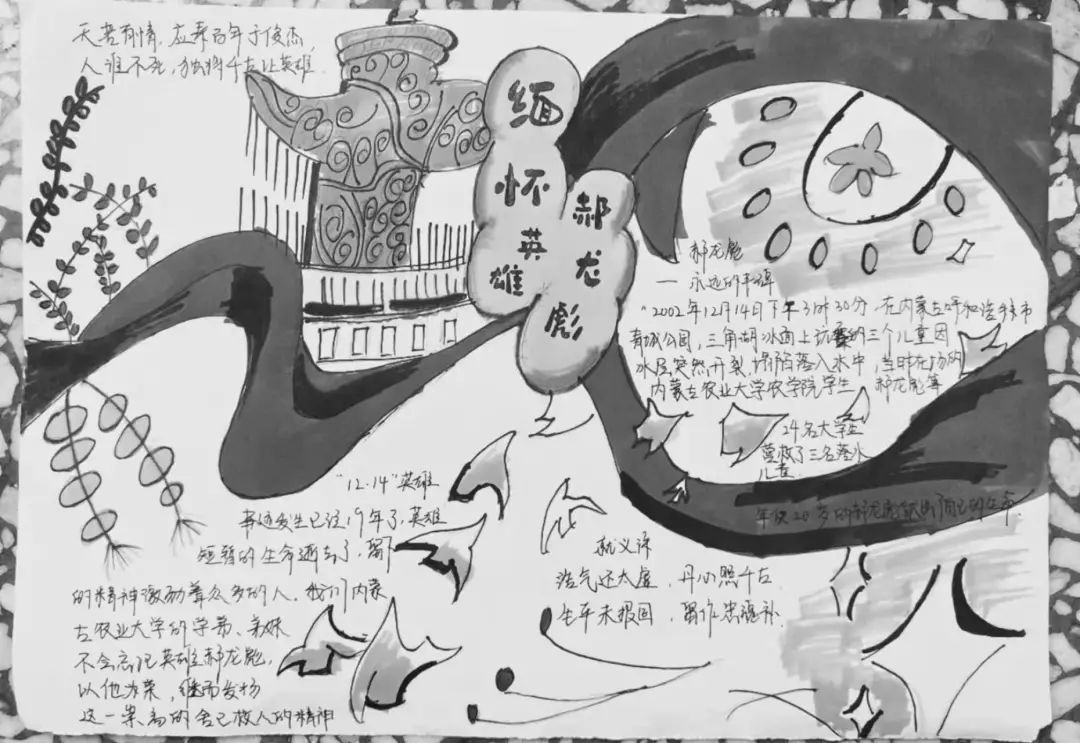 天若有情，应寿百年于俊杰，
人谁不死，独将千古让英雄
缅怀英雄
郝龙彪
郝龙彪
——永远的丰碑
"2002年12月14日下午3时30分，在内蒙古呼和浩特市
青城公园，三角湖冰面上玩耍的三个儿童因
冰层突然开裂，塌陷落入水中，当时在场的
内蒙古农业大学农学院学生 郝龙彪等
24名大学生
营救了三名落水
儿童.
年仅20岁的郝龙彪献出了自己的生命.
"12·14"英雄
事迹发生已过19年了，英雄
短暂的生命逝去了，留下
的精神激励着众多的人. 我们内蒙
古农业大学的学弟、弟妹
不会忘记英雄郝龙彪，
以他为荣，继而发扬
这一崇高的舍己救人的精神
就义诗
浩气还太虚，丹心照千古.
生平未报国，留作忠魂补.